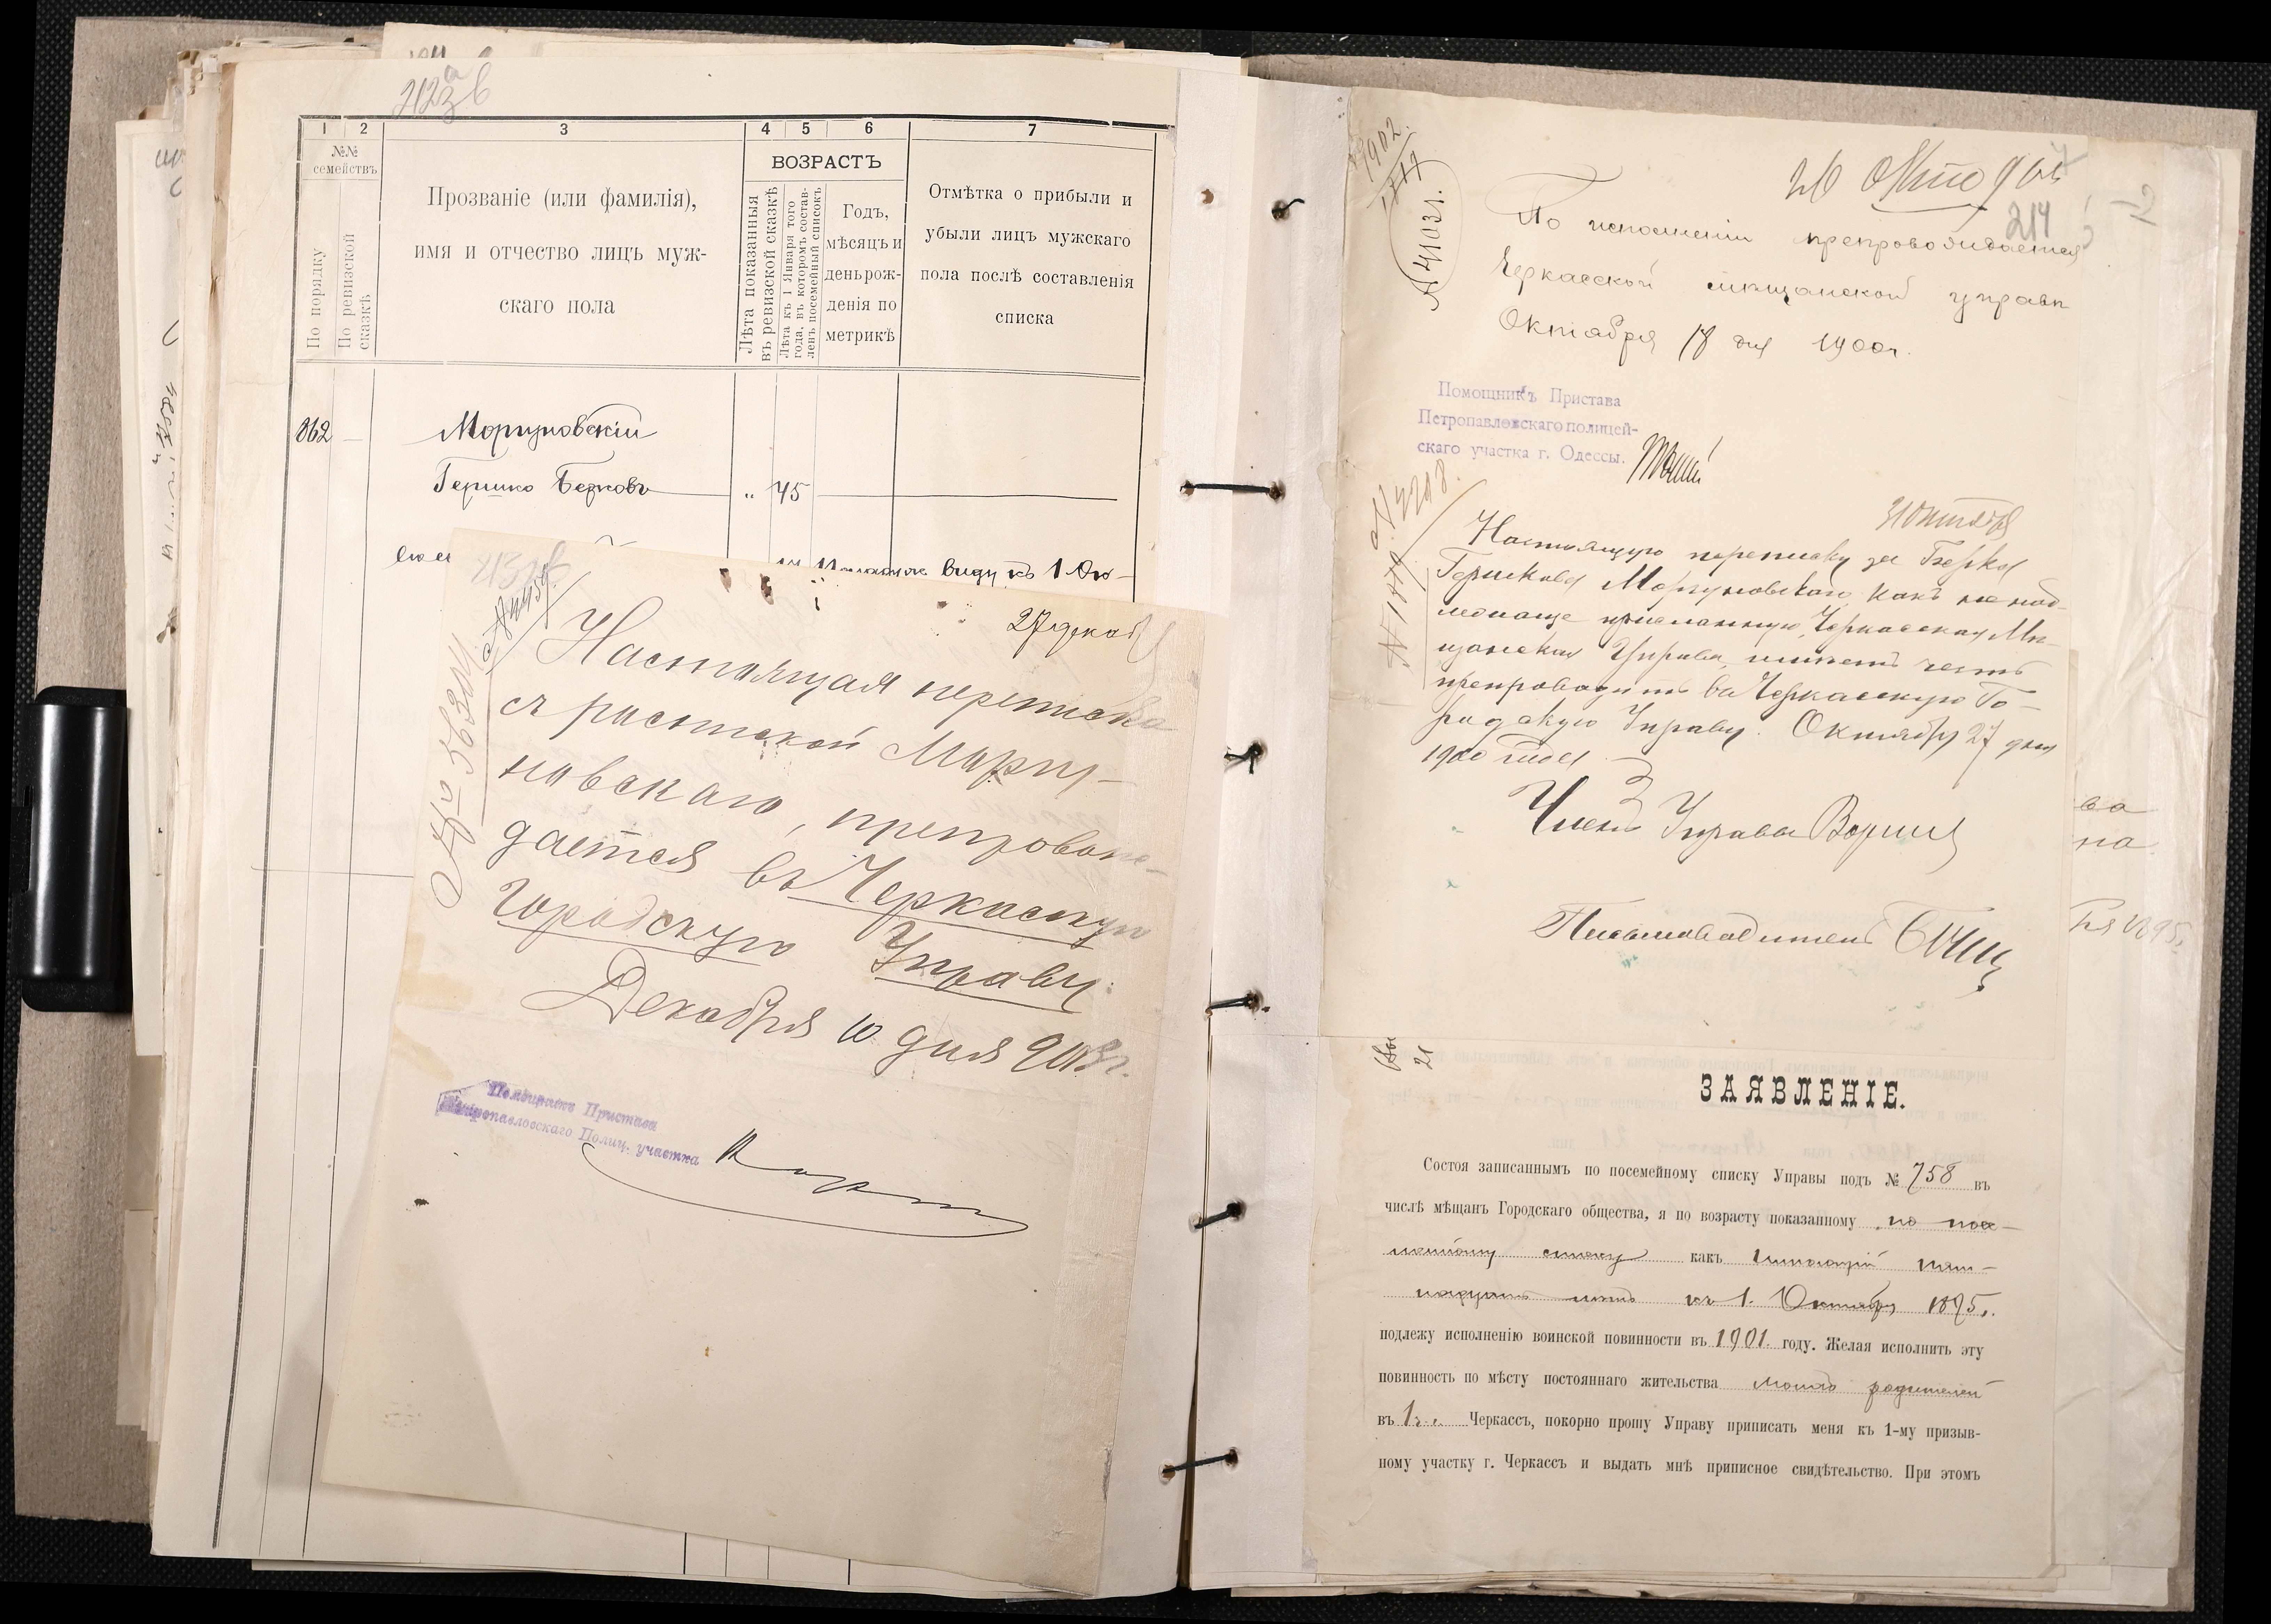 212
1
2
3
4
5
6
7
№№
семействъ
По порядку
По ревизской
сказкѣ
Прозваніе (или фамилія),
имя и отчество лицъ муж-
скаго пола
ВОЗРАСТЪ
Лѣта показанныя
въ ревизской сказкѣ
Лѣта къ 1 Января того
года, въ которомъ состав-
ленъ посемейный списокъ
Годъ,
мѣсяцъ и
день рож-
денія по
метрикѣ
Отмѣтка о прибыли и
убыли лицъ мужскаго
пола послѣ составленія
списка
862
Моргуновскій
Гершко Берковъ „ 45
виду къ 1 Ок-
27 декаб
Настоящая переписка
съ роспиской Моргу-
новскаго, препровож-
дается въ Черкасскую
Городскую Управу.
Декабря 10 дня
Помощникъ Пристава
Петропавловскаго Полиц. участка
1902.
26 Октября
214
По исполненіи препровождается
Черкасской мѣщанской управѣ
Октября 18 дня 1900 г.
Помощникъ Пристава
Петропавловскаго полицей-
скаго участка г. Одессы.
Настоящую переписку за Берка
Гершкова Моргуновскаго, какъ не над-
лежаще присланную, Черкасская Мѣ-
щанская Управа, имѣетъ честь
препроводить въ Черкасскую Го-
родскую Управу. Октября 27 дня
1900 года
Членъ Управы
Письмоводитель
ва
на
1895.
21
ЗАЯВЛЕНІЕ.
Состоя записаннымъ по посемейному списку Управы подъ № 758 въ
числѣ мѣщанъ Городскаго общества, я по возрасту показанному по посе-
мейному списку какъ имѣющій пят-
надцать лѣтъ къ 1. Октября 1895 г.
подлежу исполненію воинской повинности въ 1901 году. Желая исполнить эту
повинность по мѣсту постояннаго жительства моихъ родителей
въ г. Черкассъ, покорно прошу Управу приписать меня къ 1-му призыв-
ному участку г. Черкассъ и выдать мнѣ приписное свидѣтельство. При этомъ